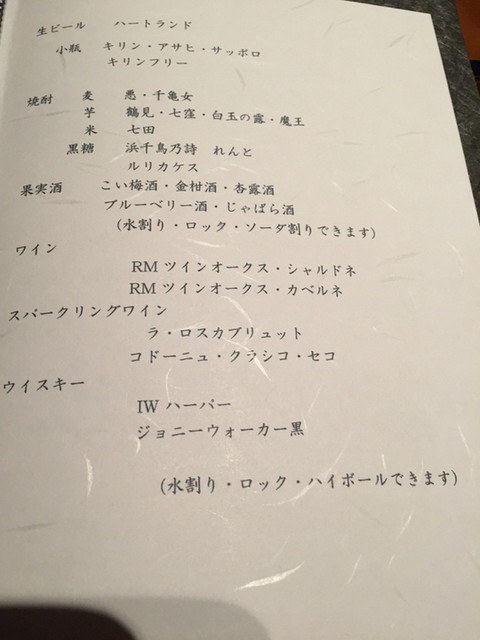 生ビール　ハートランド
小瓶　キリン・アサヒ・サッポロ
キリンフリー
焼酎　麦　悉・千亀女
芋　鶴見・七窪・白玉の露・魔王
米　七田
黒糖　浜千鳥乃詩　れんと
ルリカケス
果実酒　こい梅酒・金柑酒・杏露酒
ブルーベリー酒・じゃばら酒
（水割り・ロック・ソーダ割りできます）
ワイン
RMツインオークス・シャルドネ
RMツインオークス・カベルネ
スパークリングワイン
ラ・ロスカブリュット
コドーニュ・クラシコ・セコ
ウイスキー
IWハーパー
ジョニーウォーカー黒
（水割り・ロック・ハイボールできます）